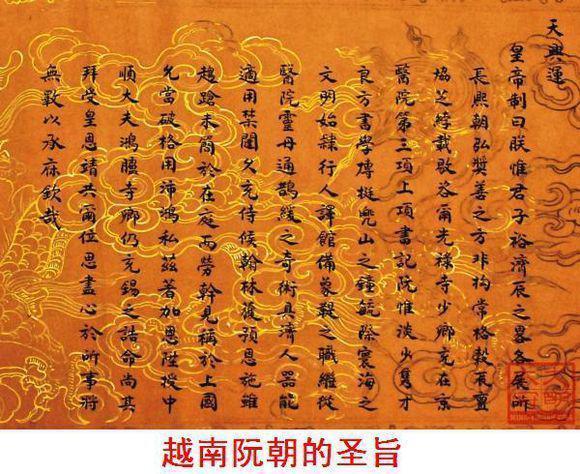 天興運
皇帝制曰朕惟君子裕濟辰之畧各展所
長熙朝弘奬善之方非拘常格契辰亶
協芝綍載敭咨爾光祿寺少卿充在京
醫院第三項上項書記阮惟淡少才
良方書學博挺山之鍾毓際寰海之
文明始隸行人譯館備之職繼從
醫院靈毋通鵲緩之奇術具濟人器能
適用禁闥久充侍候翰林復預恩施雖
趨蹌未閒於在庭而勞幹見稱於上國
允當破格用沛鴻私茲著加恩陞授中
順大夫鴻臚寺卿仍充錫之誥命尚其
拜受皇恩靖共爾位思盡心於所事將
無斁以承庥欽哉
越南阮朝的圣旨